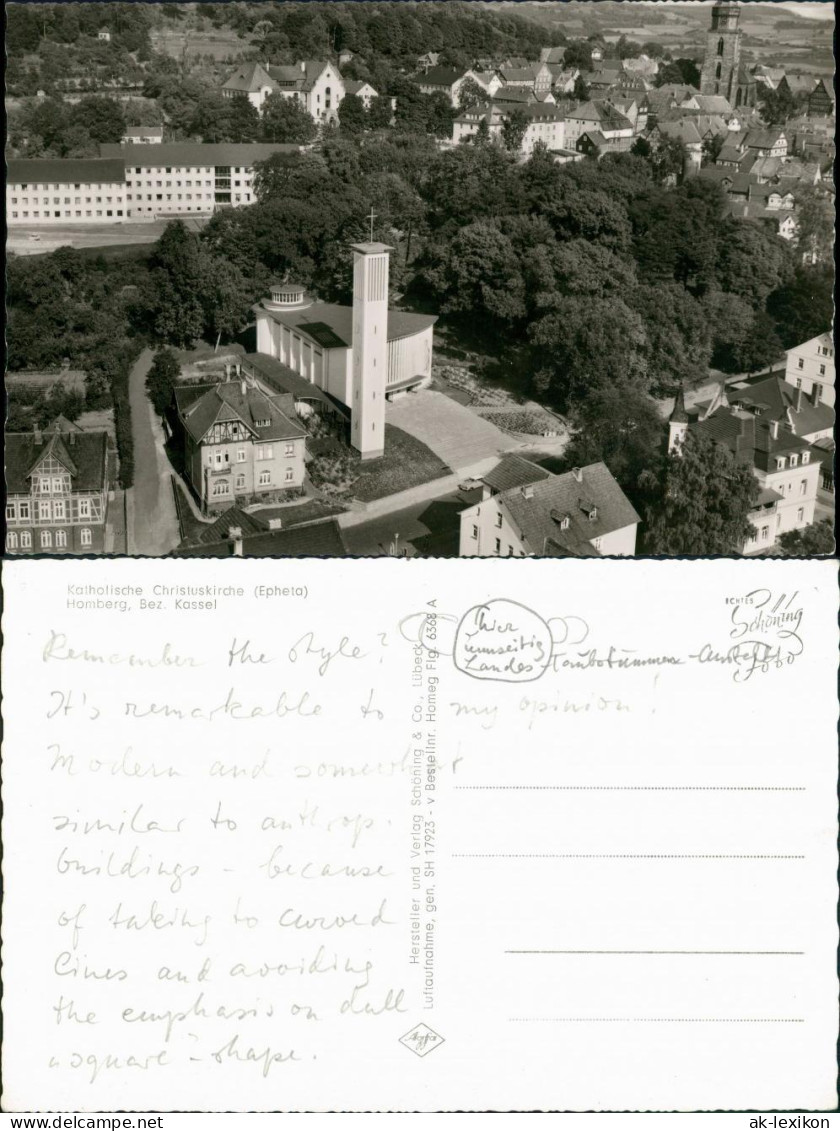 Katholische Christuskirche (Epheta)
Homberg, Bez. Kassel
Remember the style?
It's remarkable to
Modern and somewhat
similar to anthrop.
buildings - because
of taking to curved
lines and avoiding
the emphasis on dull
"square"-shape.
Hersteller und Verlag Schöning & Co., Lübeck
Luftaufnahme, gen. SH 17923 - v Bestellnr. Homeg Flg. 6368 A
Agfa
(hier
umseitig
Landes-Taubstummen-Anstalt
my opinion!
ECHTES
Schöning
Foto
www.ak-lexikon.de
ak-lexikon